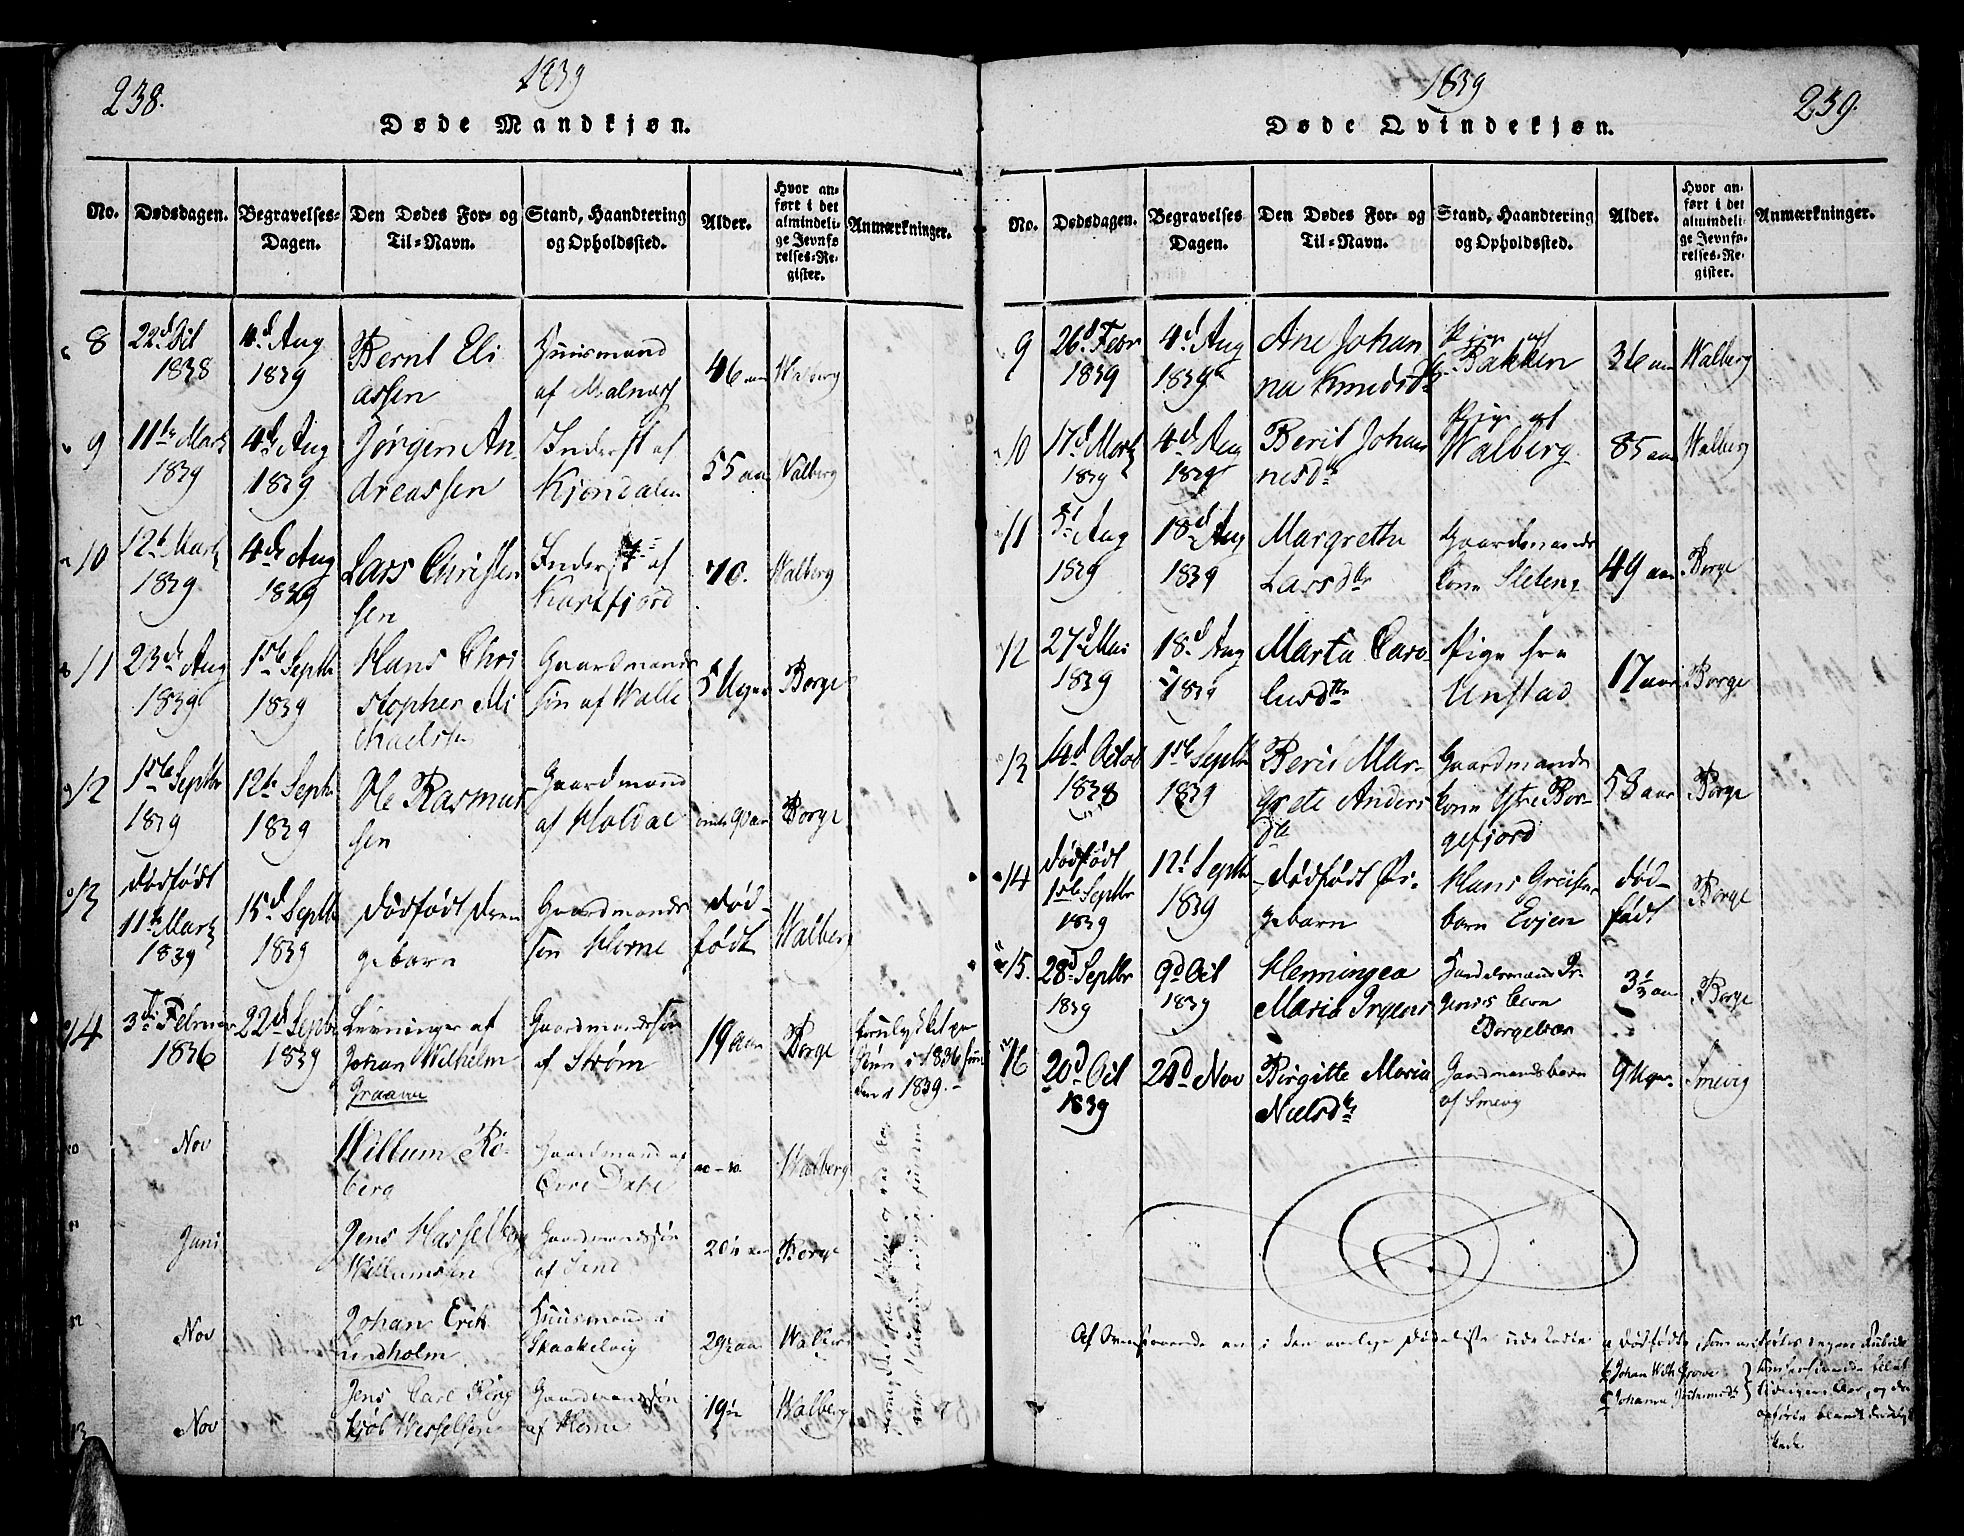 238.
1839
Døde Mandkjøn.
No.
Dødsdagen.
Begravelses-
Dagen.
Den Dødes For- og
Til-Navn.
Stand, Haandtering
og Opholdssted.
Alder.
Hvor an-
ført i det
almindeli-
ge Jevnfø
relses-Re-
gister.
Anmærkninger.
8
22d Oct
1838
4d Aug
1839
Bernt Eli
assen
Huusmand
af Malnæss
46 aar
Walberg
9
11te Martz
1839
4de Aug
1839
Jørgen An-
dreassen
Inderst af
Kjøndalen
55 aar
Walberg
10
12te Martz
1839
4de Aug
1839
Lars Christen
sen
Inderst af
Kartfjord
70.
Walberg
11
23de Aug
1839
1ste Septbr
1839
Hans Chri
stopher Mi
chaelsen
Gaardmands
søn af Walle
5 Uger
Borge
12
1ste Septbr
1839
12te Septbr
1839
Ole Rasmus
sen
Gaardmand
af Holdal
90 aar
Borge
13
dødfødt
11te Martz
1839
15d Septbr
1839
dødfødt dren
gebarn
Gaardmands
søn Horne
død-
født
Walberg
14
3die Februar
1836
22d Septbr
1839
Levninger af
Johan Wilhelm
Graave
Gaardmandssøn
af Strøm
19 aar
Borge
forulykket paa
Søen i 1836 fun
den i 1839.-
Nov
Willum Ro-
berg
Gaardmand af
Øvre Dahl
Walberg
Juni
Jens Hasselberg
Willumsen
Gaardmandssøn
af Sund
20½ aar
Borge
Nov
Johan Erik
Lindholm
Huusmand i
Skaakelvig
29½ aar
Walberg
13
Nov
Jens Carl Ring
Jacob Wesselsen
Gaardmandssøn
af Horne
19½
Walberg
239.
1839
Døde Qvindekjøn.
No.
Dødsdagen.
Begravelses
Dagen.
Den Dødes For- og
Til-Navn.
Stand, Haandtering
og Opholdssted.
Alder.
Hvor an-
ført i det
almindeli-
ge Jevnfø-
relses-Re-
gister.
Anmærkninger.
9
26d Febr
1839
4d Aug
1839
Ane Johan
na Knudsdtr
Pige af
Bakken
36 aar
Walberg
10
17d Martz
1839
4de Aug
1839
Berit Johan
nesdtr
Pige af
Walberg
85 aar
Walberg
11
5d Aug
1839
18d Aug
1839
Margrethe
Larsdtr
Gaardmands
kone Sleteng
49 aar
Borge
12
27d Mai
1839
18d Aug
1839
Marta Caro-
lusdtr
Pige fra
Unstad
17 aar
Borge
13
14d Octob
1838
1ste Septbr
1839
Berit Mar-
grete Anders
dtr
Gaardmands
kone Ytre Bor-
gefjord
58 aar
Borge
14
dødfødt
1ste Septbr
1839
12d Septbr
1839
dødfødt Pi-
gebarn
Hans
barn Evjen
død-
født
Borge
15.
28d Septbr
1839
9d Oct
1839
Henningea
Maria Irgens
Handelsmand Ir-
gens barn
Borgevær
3½ aar
Borge
16
20d Oct
1839
24d Nov
Birgitte Maria
Nielsdtr
Gaardmandsbarn
af Smevig
9 Uger
Smevig
i den aarlige Dødeliste
dødfødte, som
Johan Wilh Grove
Johanna